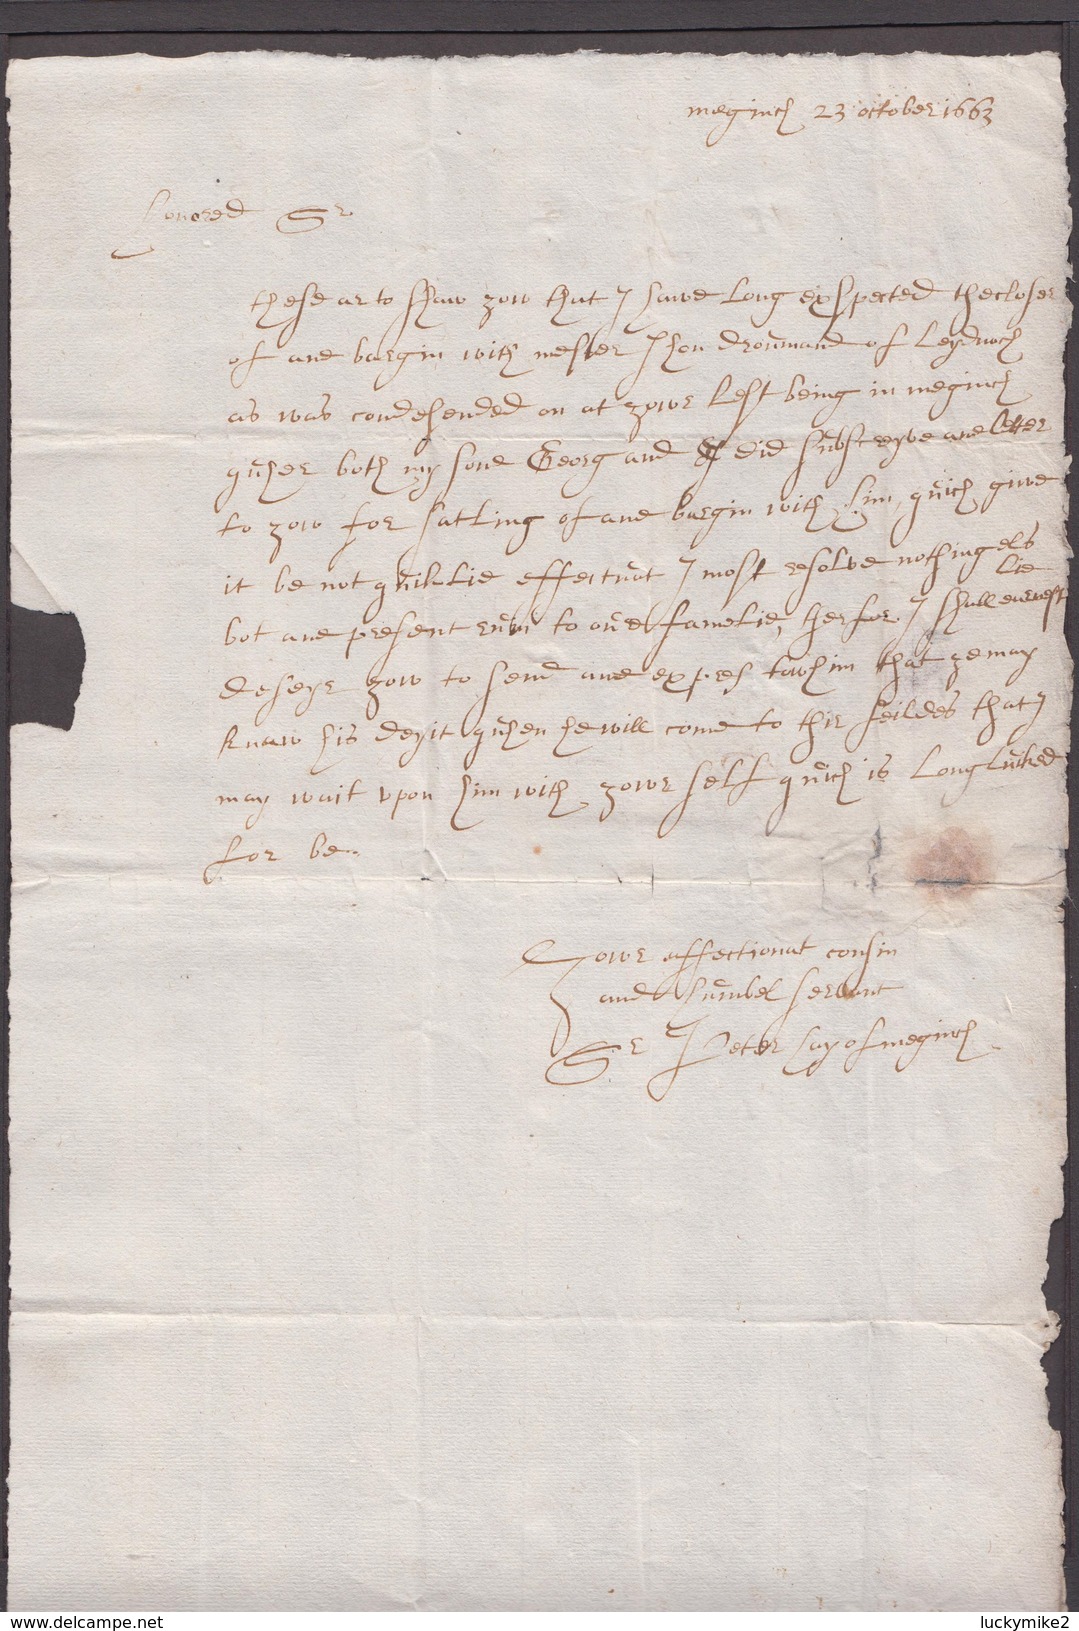 meginch 23 october 1663
honored Sr
these ar to shaw zow that I have long exspected the closer
of ane bargin with mester Jhon Drowmand of Leydnoch
as was condesended on at zowr lest being in meginch
quher both my sone Georg and I did subscryve ane letter
to zow for satling of ane bargin with him, quich give
it be not quiklie effectuat I most resolve nothing els
bot ane present ruin to our familie, therfor I shall earnestlie
deseyr zow to send ane expres to him that ze may
knaw his deyit quhen he will come to thir feildes that I
may wait upon him with zowr self quich is long luked
for be
Zowr affectionat cousin
and humbel servant
Sr Peter hay of meginch
www.delcampe.net
luckymike2